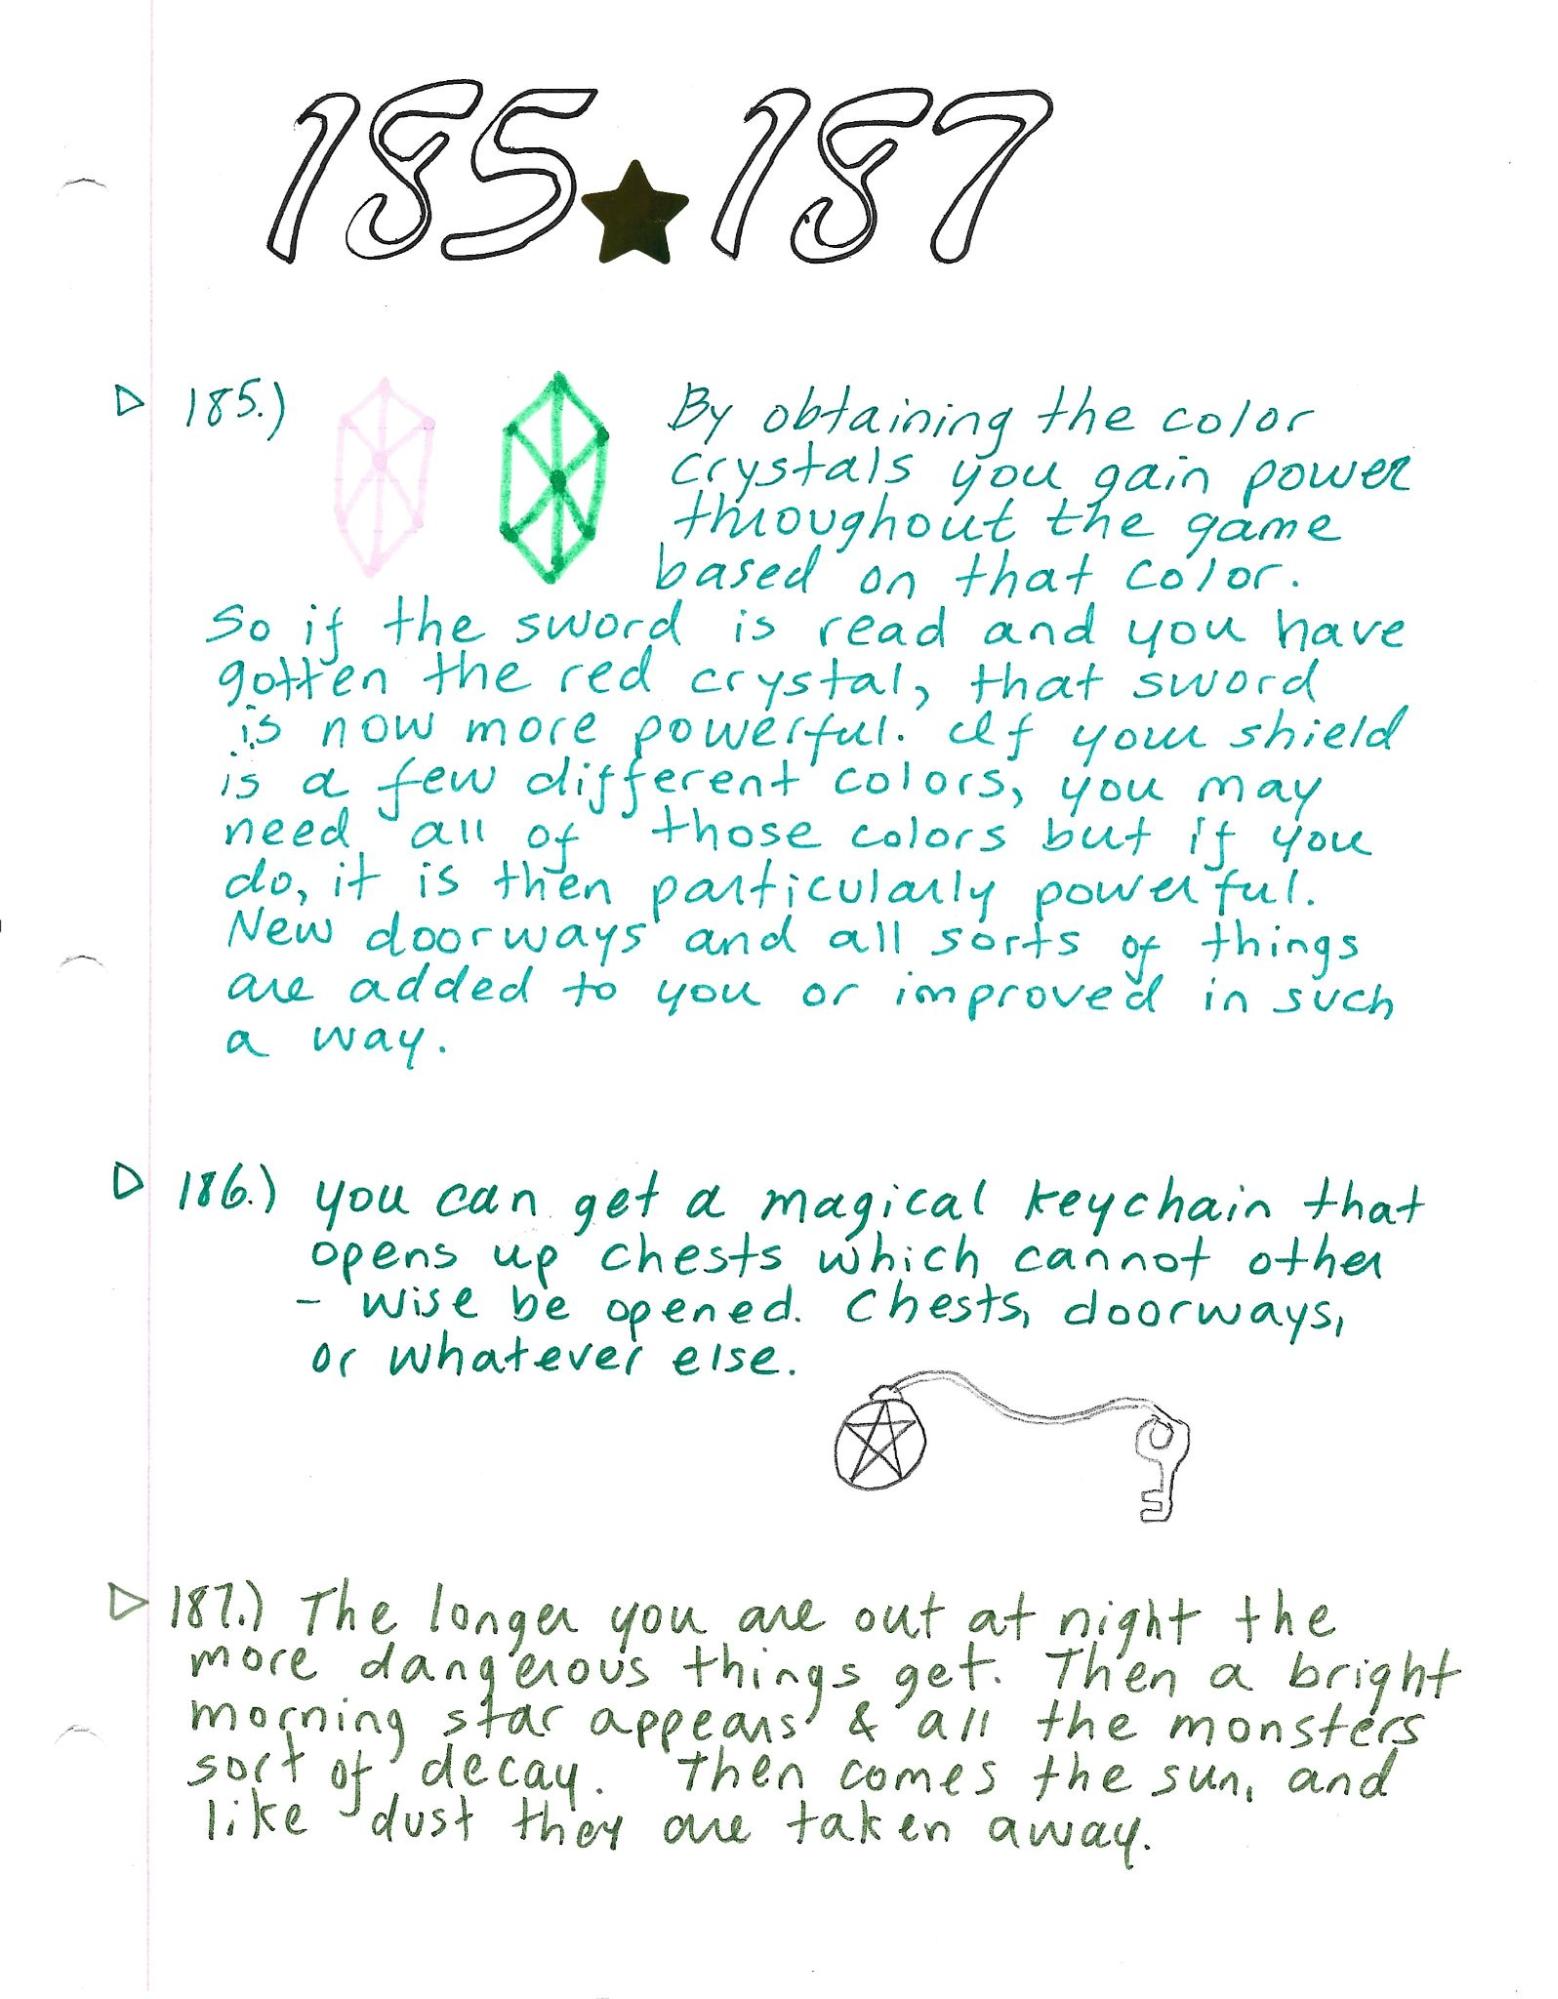 185 ★ 187
▷ 185.) By obtaining the color
crystals you gain power
throughout the game
based on that color.
So if the sword is read and you have
gotten the red crystal, that sword
is now more powerful. If your shield
is a few different colors, you may
need all of those colors but if you
do, it is then particularly powerful.
New doorways and all sorts of things
are added to you or improved in such
a way.
▷ 186.) you can get a magical keychain that
opens up chests which cannot other
- wise be opened. Chests, doorways,
or whatever else.
▷ 187.) The longer you are out at night the
more dangerous things get. Then a bright
morning star appears & all the monsters
sort of decay. Then comes the sun, and
like dust they are taken away.